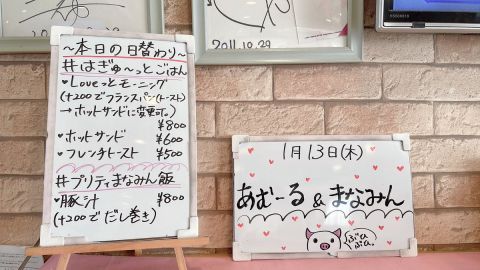 2011.10.29
~本日の日替わり~
#はぎゅ~っとごはん
♥Loveっとモーニング
(+200でフランスパン(トースト)
→ホットサンドに変更可。)
¥800
♥ホットサンド ¥600
♥フレンチトースト ¥500
#プリティまなみん飯
♥豚汁 ¥800
(+200でだし巻き)
1月13日(木)
あむーる & まなみん
ぶひ
ぶひ。